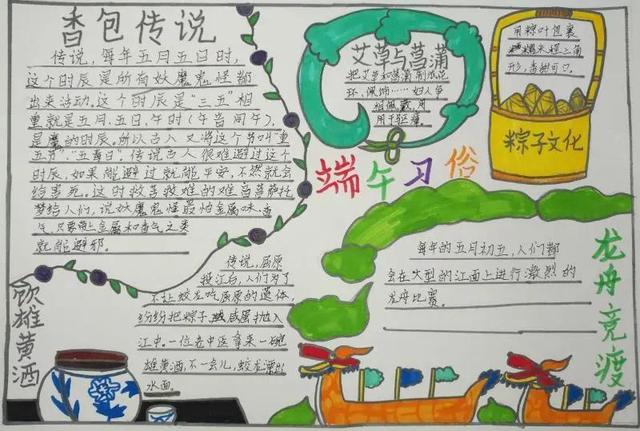 香包传说
传说，每年五月五日时，
这个时辰是所有妖魔鬼怪都
出来活动，这个时辰是“三五”相
重就是五月五日，午时(午当同午)，
是魔的时辰，所以古人又将这个节叫“重
五节”，“五毒日”，传说古人很难避过这个
时辰，如果能避过就能平安，不然就会
给害死。这时救苦救难的难音菩萨托
梦给人们，说妖魔鬼怪最怕金属味，香
气，只要带上金属和香气之类
就能避邪。
艾草与菖蒲
把艾草和菖蒲
环，佩饰……妇人争
相佩戴，用
用于驱瘴
用粽叶包裹
糯米捏三角
形，香甜可口。
粽子文化
端午习俗
每年的五月初五，人们都
会在大型的江面上进行激烈的
龙舟比赛。
龙舟竞渡
饮雄黄酒
传说，屈原
投江后，人们为了
不让蛟龙吃屈原的遗体，
纷纷把粽子、咸蛋抛入
江中。一位老中医拿来一碗
雄黄酒，不一会儿，蛟龙漂出
水面。